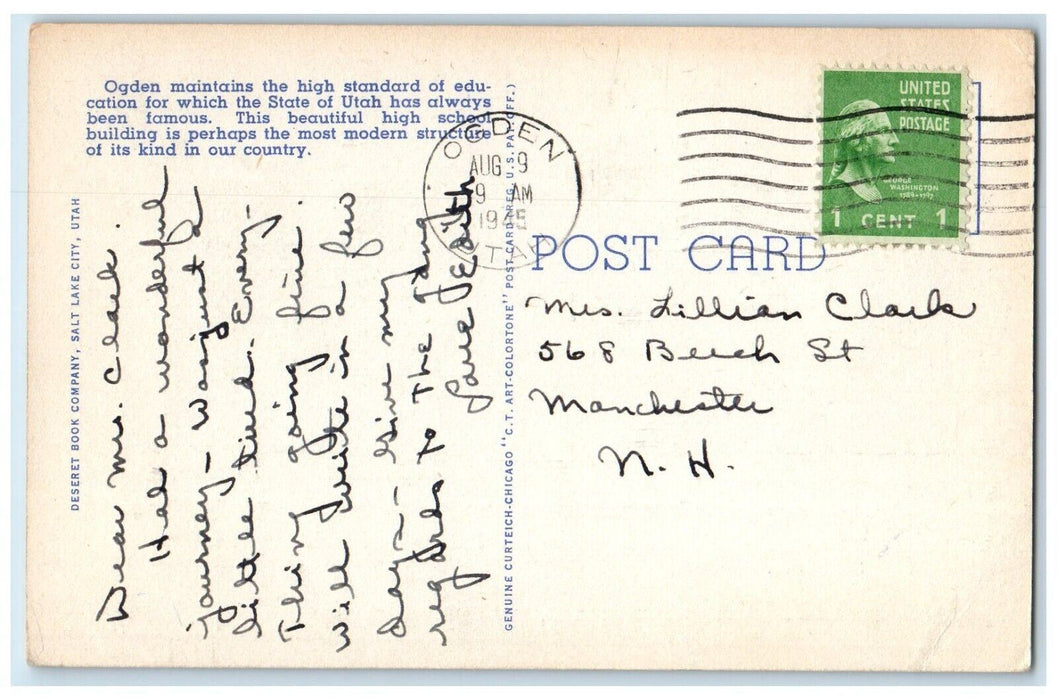 Ogden maintains the high standard of edu-
cation for which the State of Utah has always
been famous. This beautiful high school
building is perhaps the most modern structure
of its kind in our country.
DESERET BOOK COMPANY, SALT LAKE CITY, UTAH
Dear Mrs. Clark.
Had a wonderful
journey - was just a
little tired. Every-
thing going fine.
will write in a few
days - Give my
regards to the
Love Edith
GENUINE CURTEICH-CHICAGO "C.T. ART-COLORTONE" POST CARD (REG. U.S. PAT. OFF.)
OGDEN
AUG 9
9 AM
1945
UTAH
UNITED
STATES
POSTAGE
GEORGE
WASHINGTON
1789-1797
1 CENT 1
POST CARD
Mrs. Lillian Clark
568 Beech St
Manchester
N. H.